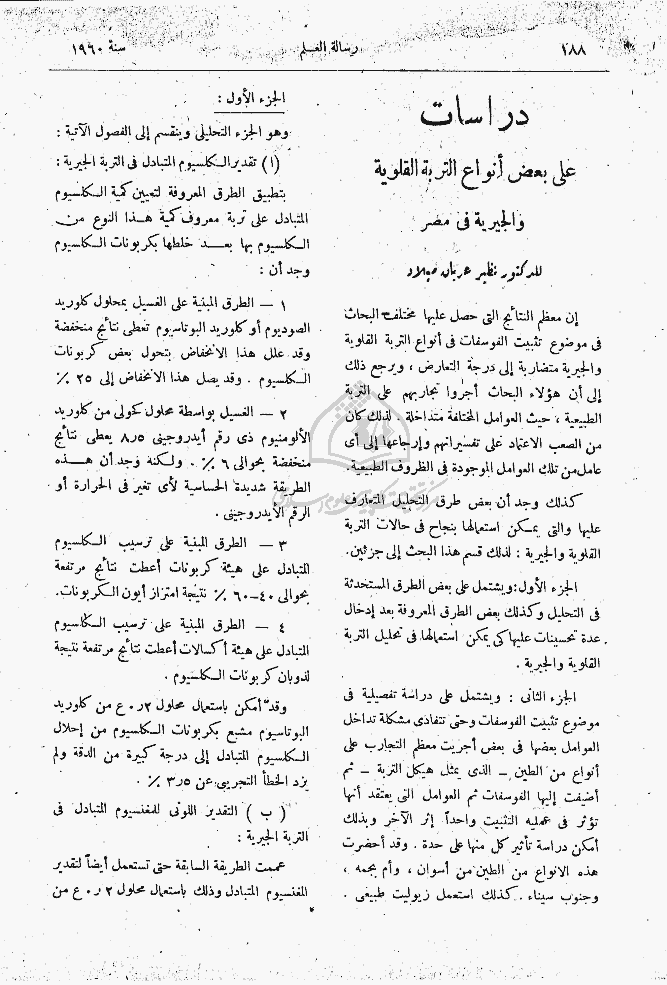 ٢٨٨
رسالة العلم
سنة ١٩٦٠
دراسات
على بعض أنواع التربة القلوية
والجيرية فى مصر
للدكتور نظير عريان ميلاد
إن معظم النتائج التى حصل عليها مختلف البحاث
فى موضوع تثبيت الفوسفات فى أنواع التربة القلوية
والجيرية متضاربة إلى درجة التعارض ، ويرجع ذلك
إلى أن هؤلاء البحاث أجروا تجاربهم على التربة
الطبيعية ، حيث العوامل المختلفة متداخلة . لذلك كان
من الصعب الاعتماد على تفسيراتهم وإرجاعها إلى أى
عامل من تلك العوامل الموجودة فى الظروف الطبيعية.
كذلك وجد أن بعض طرق التحليل المتعارف
عليها والتى يمكن استعمالها بنجاح فى حالات التربة
القلوية والجيرية : لذلك قسم هذا البحث إلى جزئين.
الجزء الأول: ويشتمل على بعض الطرق المستحدثة
فى التحليل وكذلك بعض الطرق المعروفة بعد إدخال
عدة تحسينات عليها كى يمكن استعمالها فى تحليل التربة
القلوية والجيرية .
الجزء الثانى : ويشتمل على دراسة تفصيلية فى
موضوع تثبيت الفوسفات وحتى تتفادى مشكلة تداخل
العوامل بعضها فى بعض أجريت معظم التجارب على
أنواع من الطين — الذى يمثل هيكل التربة — ثم
أضيفت إليها الفوسفات ثم العوامل التى يعتقد أنها
تؤثر فى عمليه التثبيت واحداً إثر الآخر وبذلك
أمكن دراسة تأثير كل منها على حدة . وقد أحضرت
هذه الانواع من الطين من أسوان ، وأم بجمه ،
وجنوب سيناء . كذلك استعمل زيوليت طبيعى .
الجزء الأول :
وهو الجزء التحليلى وينقسم إلى الفصول الآتية :
(ا) تقدير الكلسيوم المتبادل فى التربة الجيرية :
بتطبيق الطرق المعروفة لتعيين كمية الكلسيوم
المتبادل على تربة معروف كمية هذا النوع من
الكلسيوم بها بعد خلطها بكربونات الكلسيوم
وجد أن :
١ — الطرق المبنية على الغسيل بمحلول كلوريد
الصوديوم أو كلوريد البوتاسيوم تعطى نتائج منخفضة
وقد علل هذا الانخفاض بتحول بعض كربونات
الكلسيوم . وقد يصل هذا الانخفاض إلى ٢٥ ٪
٢ — الغسيل بواسطة محلول كحولى من كلوريد
الألومنيوم ذى رقم أيدروجينى ٨٫٥ يعطى نتائج
منخفضة بحوالى ٦ ٪ . ولكنه وجد أن هذه
الطريقة شديدة الحساسية لأى تغير فى الحرارة أو
الرقم الأيدروجينى .
٣ — الطرق المبنية على ترسيب الكلسيوم
المتبادل على هيئة كربونات أعطت نتائج مرتفعة
بحوالى ٤٠—٦٠ ٪ نتيجة امتزاز أيون الكربونات.
٤ — الطرق المبنية على ترسيب الكلسيوم
المتبادل على هيئة أكسالات أعطت نتائج مرتفعة نتيجة
لذوبان كربونات الكلسيوم .
وقد أمكن باستعمال محلول ٢ر٠ ع من كلوريد
البوتاسيوم مشبع بكربونات الكلسيوم من إحلال
الكلسيوم المتبادل إلى درجة كبيرة من الدقة ولم
يزد الخطأ التجريبى عن ٣٫٥ ٪ .
( ب ) التقدير اللونى للمغنسيوم المتبادل فى
التربة الجيرية :
عممت الطريقة السابقة حتى تستعمل أيضاً لتقدير
المغنسيوم المتبادل وذلك باستعمال محلول ٢ر٠ ع من